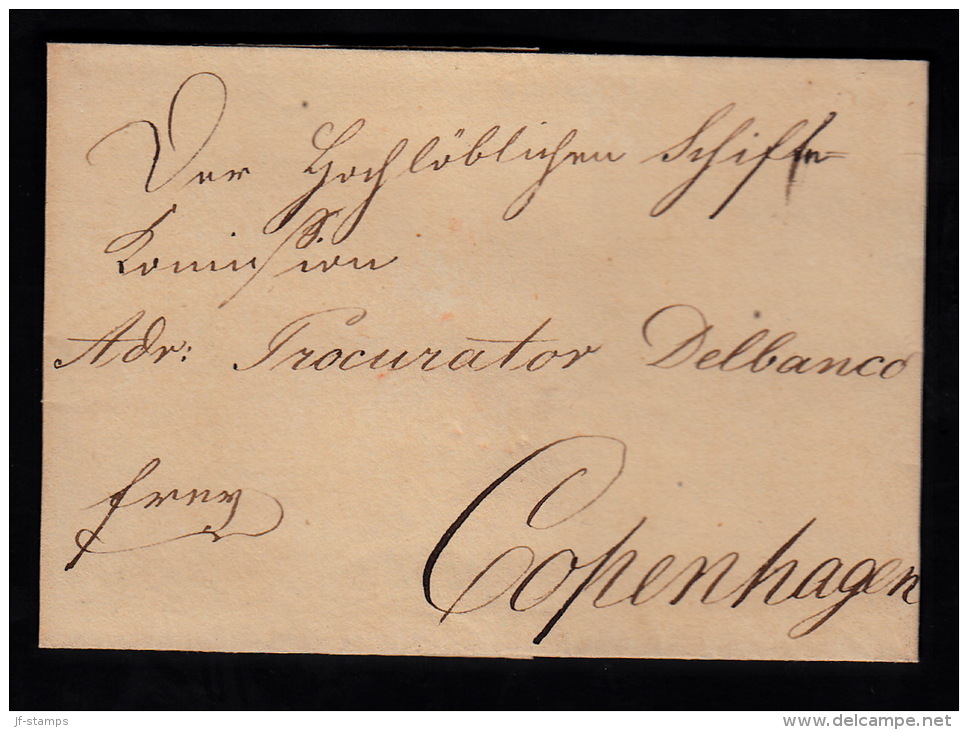 Der Hochlöblichen Schiffs=
Komission
Adr: Procurator Delbanco
frey
Copenhagen
jf-stamps
www.delcampe.net